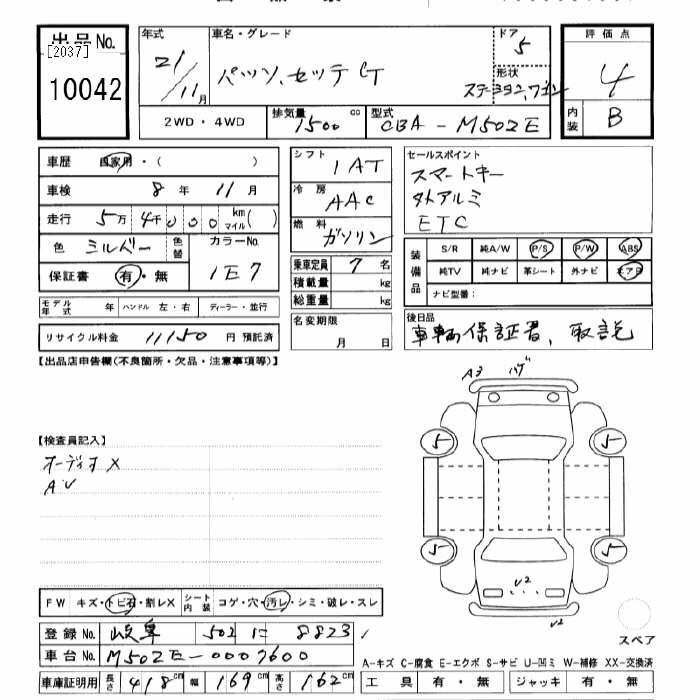 出品No.
[2037]
10042
年式 21/11月
車名・グレード パッソ,セッテ G T
ドア 5
形状 ステーションワゴン
評価点 4
内装 B
2WD・4WD
排気量 1500 cc
型式 CBA-M502E
車歴 自家用・( )
車検 8年 11月
走行 5万4千000 km マイル( )
色 シルバー
色替
カラーNo. 1E7
保証書 有・無
シフト 1AT
冷房 AAC
燃料 ガソリン
乗車定員 7名
積載量 kg
総重量 kg
セールスポイント
スマートキー
外アルミ
ETC
装備品
S/R 純A/W P/S P/W ABS
純TV 純ナビ 革シート 外ナビ エアB
ナビ型番:
モデル年式 年 ハンドル 左・右 ディーラー・並行
リサイクル料金 11150 円 預託済
名変期限 月 日
後日品
車輌保証書、取説
【出品店申告欄(不良箇所・欠品・注意事項等)】
A3
【検査員記入】
オーディオ X
5
5
AU
5
5
U2
U2
FW キズ・トビ石・割レX シート内装 コゲ・穴・汚レ・シミ・破レ・スレ
登録No. 岐阜 502 に 8823
スペア
車台No. M502E-0007600
A-キズ C-腐食 E-エクボ S-サビ U-凹ミ W-補修 XX-交換済
車庫証明用 長さ 418cm 幅 169cm 高さ 162cm
工具 有・無 ジャッキ 有・無